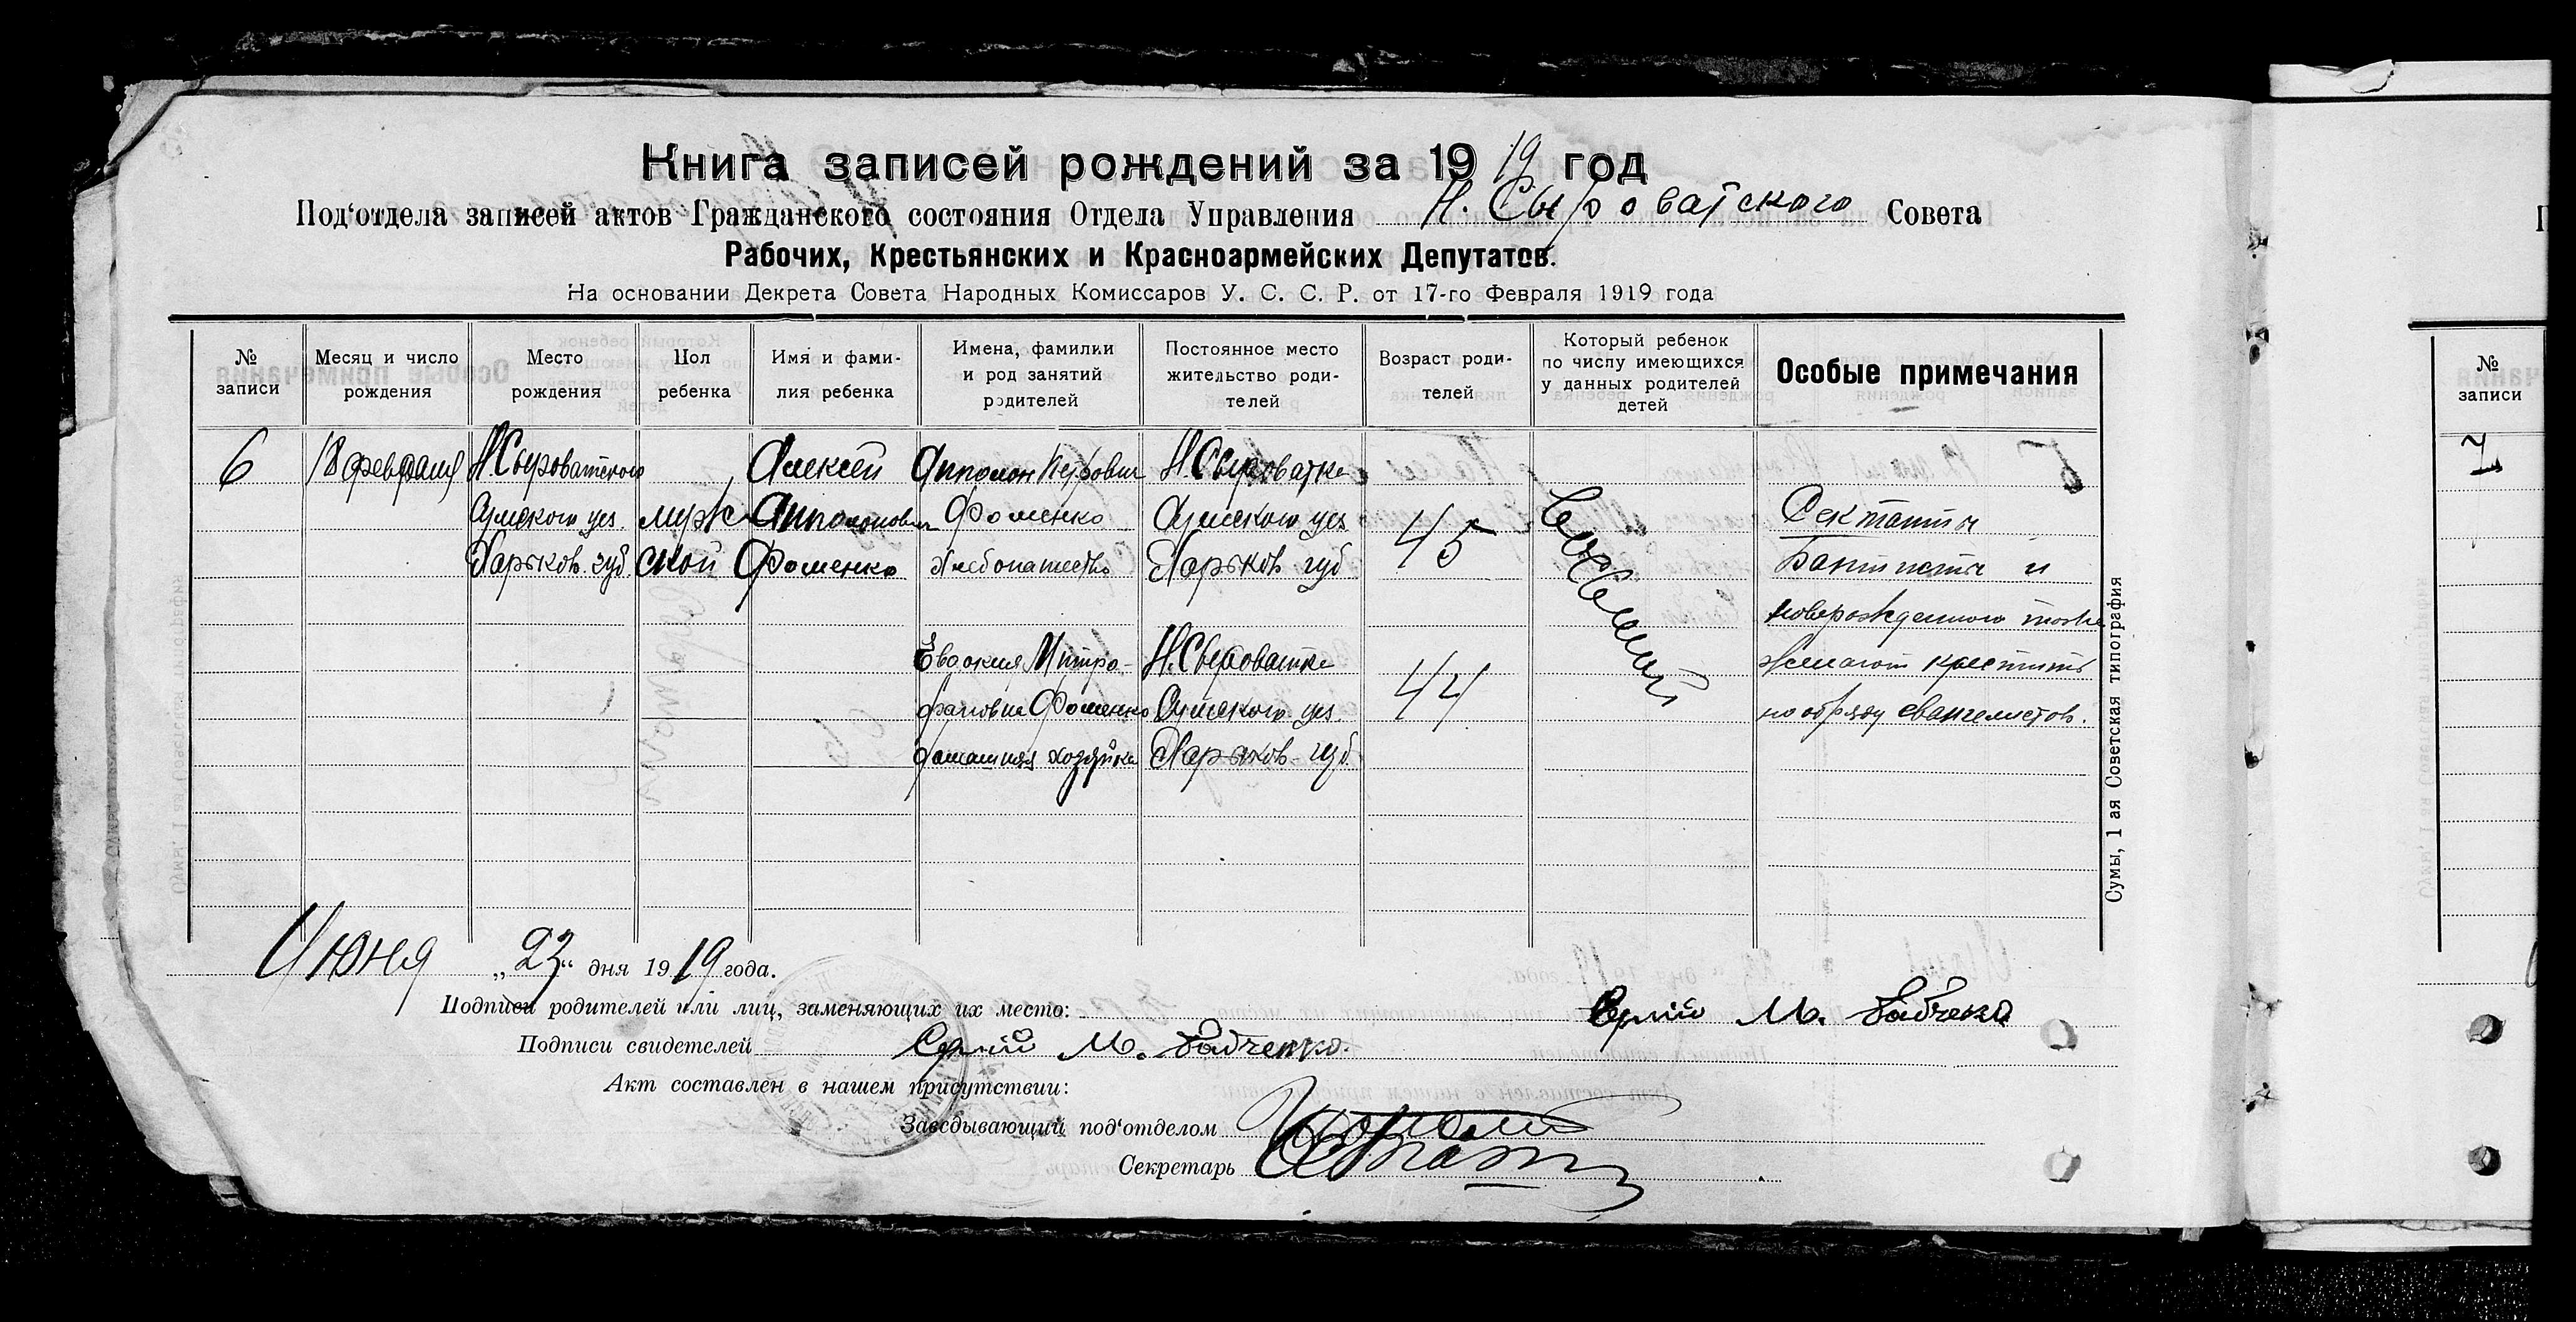 Книга записей рождений за 1919 год
Под'отдела записей актов Гражданского состояния Отдела Управления Н. Сыроватского Совета
Рабочих, Крестьянских и Красноармейских Депутатов.
На основании Декрета Совета Народных Комиссаров У. С. С. Р. от 17-го Февраля 1919 года
№ записи
Месяц и число рождения
Место рождения
Пол ребенка
Имя и фами-
лия ребенка
Имена, фамилии
и род занятий
родителей
Постоянное место
жительство роди-
телей
Возраст роди-
телей
Который ребенок
по числу имеющихся
у данных родителей
детей
Особые примечания
№ записи
6
18 февраля
Н. Сыроватского
Сумского уез.
Харьков. губ.
мужс
ской
Алексей
Апполонович
Фоменко
Апполон Петрович
Фоменко
Хлебопашество
Евдокия Митро-
фановна Фоменко
домашняя хозяйка
Н. Сыроватке
Сумского уез.
Харьков. губ
Н. Сыроватке
Сумского уез.
Харьков. губ.
45
44
Сектанты
Баптисты и
новорожденного тоже
желают крестить
по обряду евангелистов.
7
Июня „23“ дня 1919 года.
Подписи родителей или лиц, заменяющих их место: М.
Подписи свидетелей М.
Акт составлен в нашем присутствии:
Заведывающий под'отделом
Секретарь
Сумы, 1 ая Советская типография